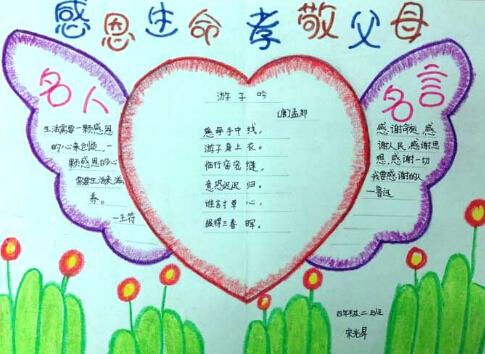 感恩生命 孝敬父母
名人
生活需要一颗感恩
的心来创造,一
颗感恩的心
需要生活来滋
养。
—王符
游子吟
[唐]孟郊
慈母手中线,
游子身上衣。
临行密密缝,
意恐迟迟归。
谁言寸草心,
报得三春晖。
名言
感谢命运,感
谢人民,感谢思
想,感谢一切
我要感谢的人
—鲁迅
四年级二班